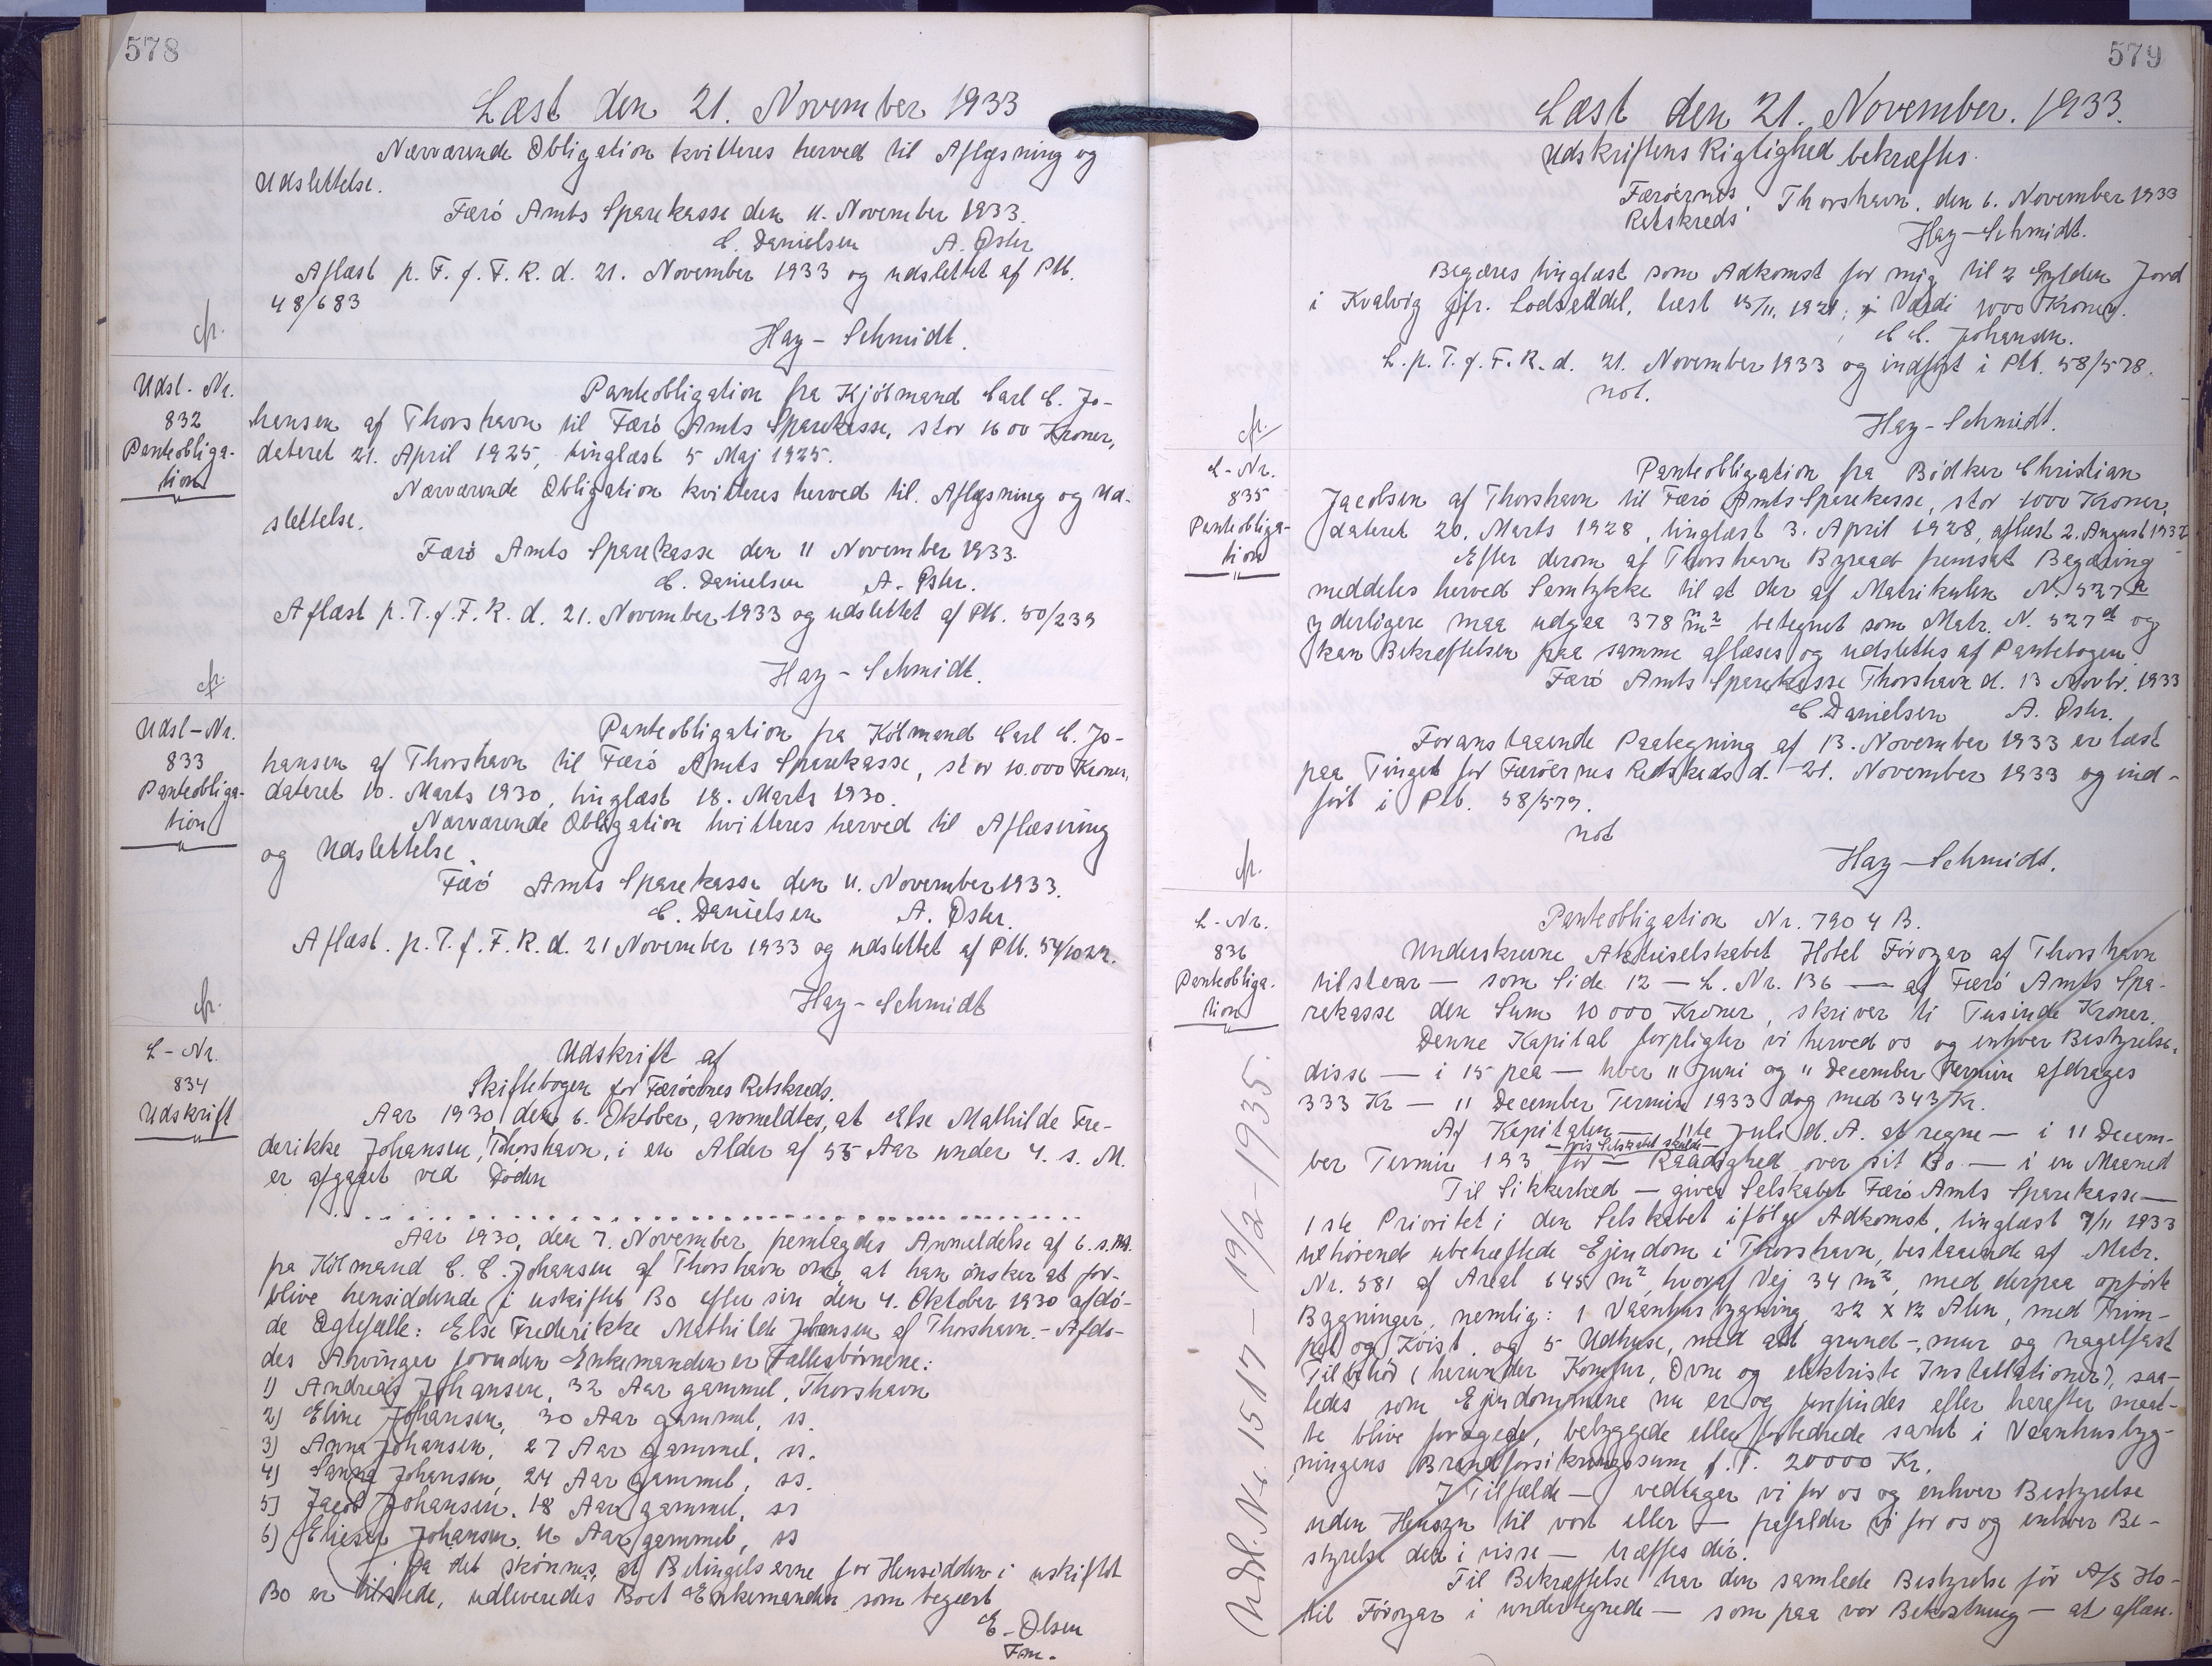 578
Læst den 21. November 1933
Nærværende Obligation kvitteres herved til Aflæsning og
Udslettelse.
Færö Amts Sparekasse den 11. November 1933.
C. Danielsen A. Öster
Aflæst p. T. f. F. R. d. 21. November 1933 og udslettet af Ptb.
48/683
cfr.
Hay-Schmidt.
Udsl-Nr.
832
Panteobliga-
tion
Panteobligation fra Kjöbmand Carl C. Jo-
hansen af Thorshavn til Færö Amts Sparekasse, stor 1600 Kroner,
dateret 21. April 1925, tinglæst 5 Maj 1925.
Nærværende Obligation kvitteres herved til Aflæsning og Ud-
slettelse.
Færö Amts Sparekasse den 11 November 1933.
C. Danielsen A. Öster.
Aflæst p. T. f. F. R. d. 21. November 1933 og udslettet af Ptb. 50/239
cfr.
Hay-Schmidt.
Udsl-Nr.
833
Panteobliga-
tion
Panteobligation fra Kölmand Carl C. Jo-
hansen af Thorshavn til Færö Amts Sparekasse, stor 10.000 Kroner,
dateret 10. Marts 1930, tinglæst 18. Marts 1930.
Nærværende Obligation kvitteres herved til Aflæsning
og Udslettelse.
Færö Amts Sparekasse den 11. November 1933.
C. Danielsen A. Öster.
Aflæst. p. T. f. F. R. d. 21 November 1933 og udslettet af Ptb. 54/1022.
cfr.
Hay-Schmidt
L-Nr.
834
Udskrift
Udskrift af
Skiftebogen for Færöernes Retskreds.
Aar 1930, den 6. Oktober, anmeldtes, at Else Mathilde Fre-
derikke Johansen, Thorshavn, i en Alder af 55 Aar under 4. s. M.
er afgaaet ved Döden
Aar 1930, den 7. November, fremlagdes Anmeldelse af 6. s. M.
fra Kölmand C. C. Johansen af Thorshavn om, at han önsker at for-
blive hensiddende i uskiftet Bo efter sin den 4. Oktober 1930 afdö-
de Ægtefælle: Else Frederikke Mathilde Johansen af Thorshavn. - Afdö-
des Arvinger foruden Enkemanden er Fællesbörnene:
1) Andreas Johansen, 32 Aar gammel, Thorshavn
2) Eline Johansen, 30 Aar gammel, ss.
3) Anna Johansen, 27 Aar gammel, ss.
4) Sanna Johansen, 24 Aar gammel, ss.
5) Jacob Johansen, 18 Aar gammel, ss
6) Elieser Johansen, 11 Aar gammel, ss
Da det skönnes, at Betingelserne for Hensidden i uskiftet
Bo er tilstede, udleveredes Boet Enkemanden som begært
E. Olsen
Fm.
579
Læst den 21. November. 1933.
Udskriftens Rigtighed bekræftes.
Færöernes Retskreds, Thorshavn, den 6. November 1933
Hay-Schmidt.
Begæres tinglæst som Adkomst for mig til 2 Gylden Jord
i Kvalvig jfr. Lodseddel, læst 15/11. 1921; i Værdi 1000 Kroner.
C. C. Johansen.
L. p. T. f. F. R. d. 21. November 1933 og indfört i Ptb. 58/578.
not.
cfr.
Hay-Schmidt.
L-Nr.
835
Panteobliga-
tion
Panteobligation fra Bödker Christian
Jacobsen af Thorshavn til Færö Amts Sparekasse, stor 1000 Kroner,
dateret 20. Marts 1928, tinglæst 3. April 1928, aflæst 2. August 1932
Efter derom af Thorshavn Byraad fremsat Begæring
meddeles herved Samtykke til at der af Matrikulen N. 327 a
yderligere maa udgaa 378 m² betegnet som Matr. N. 327 d og
kan Bekræftelsen paa samme aflæses og udslettes af Pantebogen.
Færö Amts Sparekasse Thorshavn d. 13 Novbr. 1933
C. Danielsen A. Öster.
Foranstaaende Paategning af 13. November 1933 er læst
paa Tinget for Færöernes Retskreds d. 21. November 1933 og ind-
fört i Ptb. 58/579.
not
cfr.
Hay-Schmidt.
L-Nr.
836
Panteobliga-
tion
Panteobligation Nr. 7904 B.
Underskrevne Aktieselskabet Hotel Föroyar af Thorshavn
tilstaar — som Side 12 — L. Nr. 136 — af Færö Amts Spa-
rekasse den Sum 10000 Kroner, skriver ti Tusinde Kroner.
Denne Kapital forpligter vi herved os og enhver Bestyrelse,
disse — i 15 paa — hver 11 Juni og 11 December Termin afdrages
333 Kr — 11 December Termin 1933 dog med 343 Kr.
Af Kapitalen — 11te Juli d. A. at regne — i 11 Decem-
ber Termin 193 for — hvis Selskabet skulde — Raadighed over sit Bo — i en Maaned
Til Sikkerhed — giver Selskabet Færö Amts Sparekasse —
1ste Prioritet i den Selskabet ifölge Adkomst, tinglæst 7/11 1933
tilhörende ubehæftede Ejendom i Thorshavn, bestaaende af Matr.
Nr. 581 af Areal 645 m², hvoraf Vej 34 m², med derpaa opförte
Bygninger, nemlig: 1 Vaanhusbygning, 22 x 12 Alen, med Frim-
pel og Kvist, og 5 Udhuse, med alt grund-, mur og nagelfast
Tilbehör (herunder Komfur, Ovne og elektriske Installationer), saa-
ledes som Ejendommene nu er og forefindes eller herefter maat-
te blive foragede, bebyggede eller forbedrede samt i Vaanhusbyg-
ningens Brandforsikringssum f. T. 20000 Kr.
I Tilfælde — vedtager vi for os og enhver Bestyrelse
uden Hensyn til vort eller — frafalder vi for os og enhver Be-
styrelse den i visse — træffes dér.
Til Bekræftelse har den samlede Bestyrelse för A/S Ho-
tel Föroyar i undertegnede — som paa vor Bekostning — at aflæs.
Udsl. Nr. 1517 — 19/2-1935.